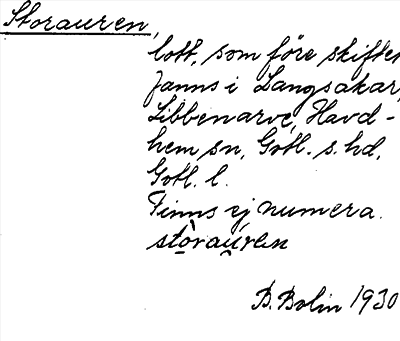 Storauren,
lott, som före skiftet
fanns i Langsakar,
Libbenarve, Havd-
hem sn, Gotl. s. hd,
Gotl. l.
Finns ej numera.
stòraúren
B. Bolin 1930